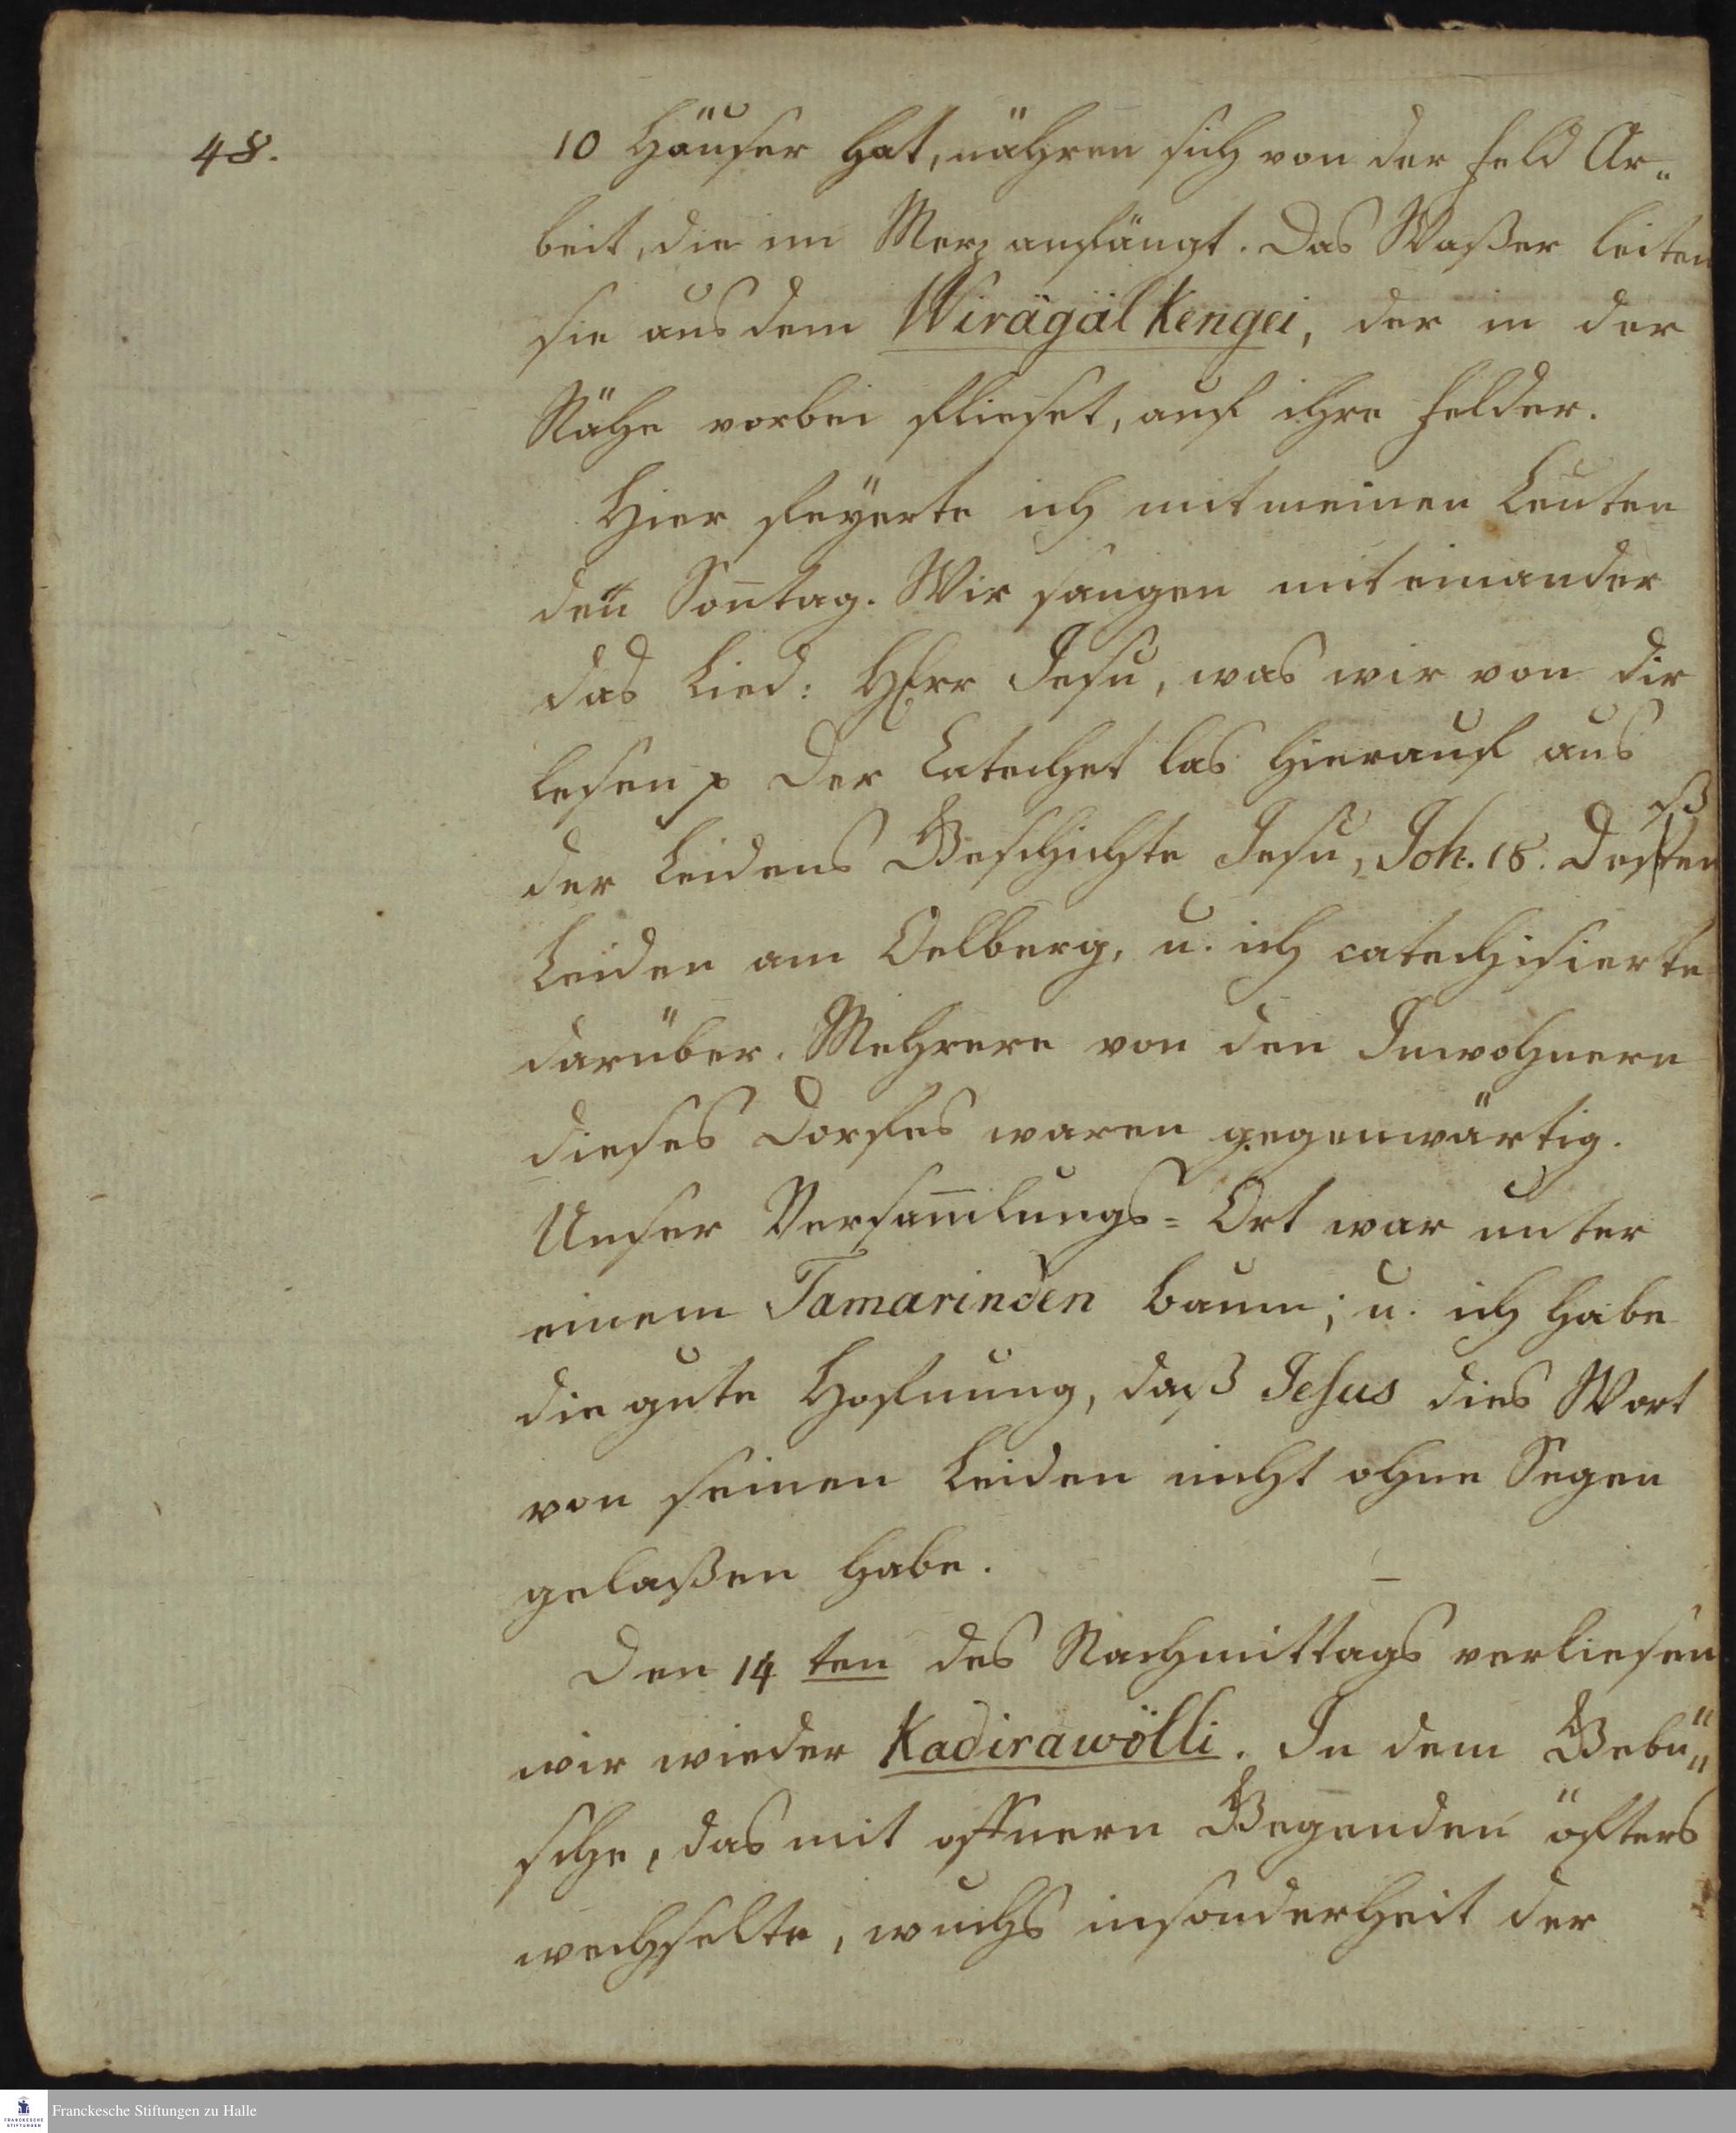 48.
10 Häuser hat, nähren sich von der Feld Ar„
beit, die im Merz anfängt. Das Waßer leiten
sie aus dem Wirägäl Kengei, der in der
Nähe vorbei flieset, auf ihre Felder.
Hier feÿerte ich mit meinen Leuten
den Son̄tag. Wir sangen mit einander
das Lied: HErr Jesu, was wir von dir
lesen p Der Catechet las hierauf aus
ß
der Leidens Geschichte Jesu, Joh. 18. Dessen
Leiden am Oelberg, u. ich catechisierte
darüber. Mehrere von den Inwohnern
dieses Dorfes waren gegenwärtig.
Unser Versam̄lungs=Ort war unter
einem Tamarinden baum; u. ich habe
die gute Hofnung, daß Jesus dies Wort
von seinen Leiden nicht ohne Segen
gelaßen habe. –
Den 14 ten des Nachmittags verliesen
wir wieder Kadirawölli. In dem Gebü„
sche, das mit offnern Gegenden öfters
wechselte, wuchs insonderheit der
FRANCKESCHE
STIFTUNGEN
Franckesche Stiftungen zu Halle